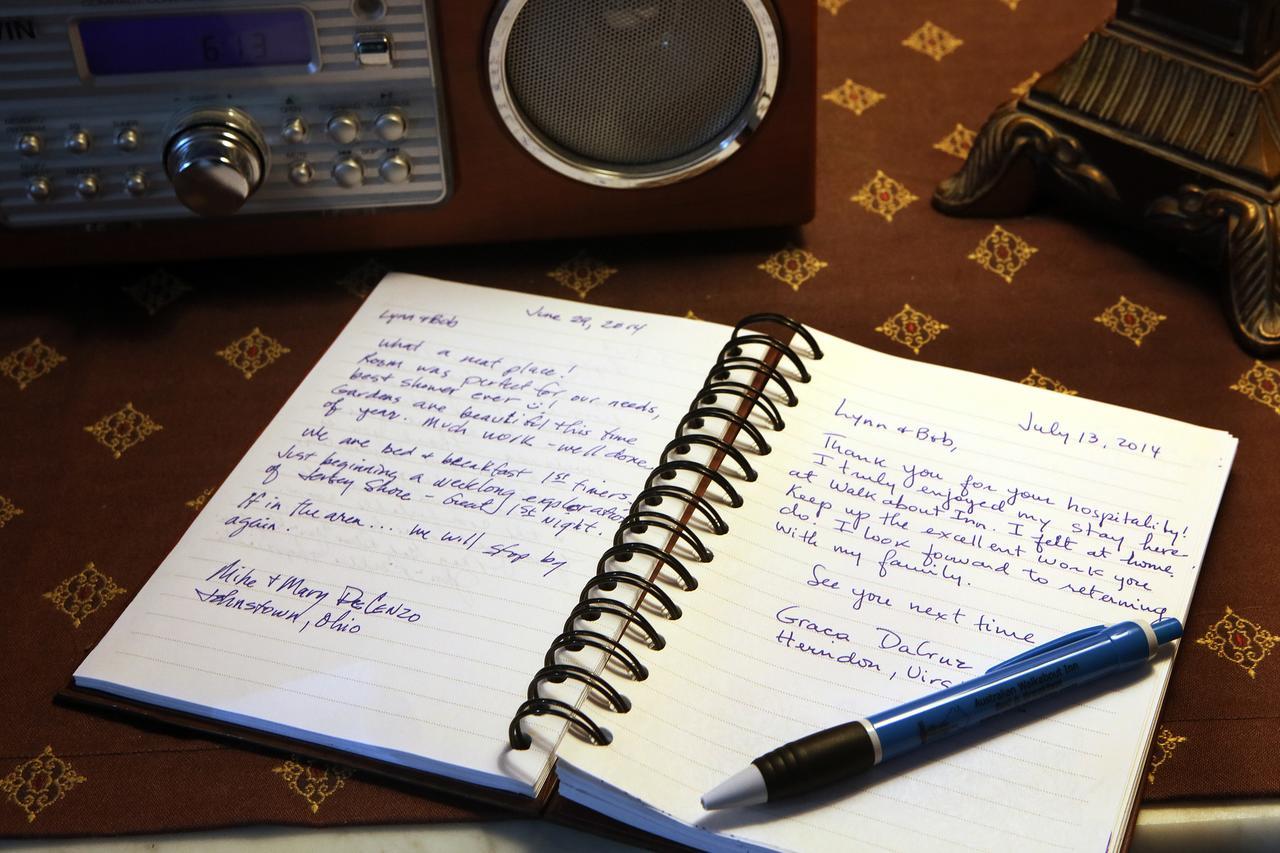 WIN
6:13
Lynn & Bob
June 29, 2014
What a neat place!
Room was perfect for our needs,
best shower ever !
Gardens are beautiful this time
of year. Much work - well done.
We are bed & breakfast 1st timers.
Just beginning a weeklong exploration
of Jersey Shore - Great 1st Night.
If in the area... we will stop by
again.
Mike & Mary DeCenzo
Johnstown, Ohio
July 13, 2014
Lynn & Bob,
Thank you for your hospitality!
I truly enjoyed my stay here
at Walkabout Inn. I felt at home.
Keep up the excellent work you
do. I look forward to returning
with my family.
See you next time
Graca DaCruz
Herndon, Virg
Australian Walkabout Inn